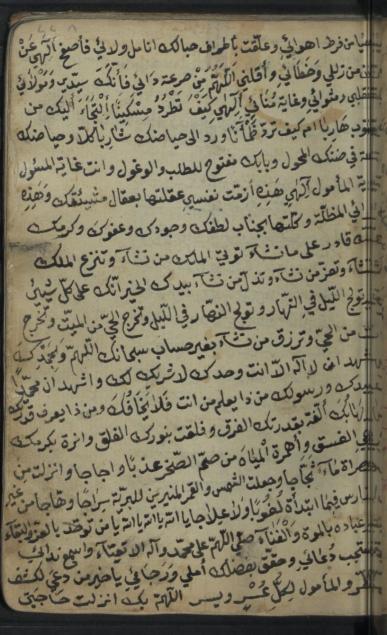 من فرط اهوائي وعلّقت باطراف حبالك انامل ولائي فاصفح الهي عن
من زللي وخطائي واقلني اللهم من صرعة دائي فانك سيدي ومولائي
ومثوائي وغاية منائي الهي كيف تطرد مسكينا التجاء اليك من
هاربا ام كيف ترد ظمآنا ورد الى حياضك شاربا كلا وحياضك
في ضنك المحول وبابك مفتوح للطلب والوغول وانت غاية المسئول
المأمول الهي هذه ازمة نفسي عقلتها بعقال مشيتك وهذه
المضلة وكلتها بجناب لطفك وجودك وعفوك وكرمك
قادر على ما تشاء تؤتي الملك من تشاء وتنزع الملك
تشاء وتعز من تشاء وتذل من تشاء بيدك الخير انك على كل شيء
تولج الليل في النهار وتولج النهار في الليل وتخرج الحي من الميت وتخرج
من الحي وترزق من تشاء بغير حساب سبحانك اللهم وبحمدك
اشهد ان لا اله الا انت وحدك لا شريك لك واشهد ان محمدا
عبدك ورسولك من ذا يعلم من انت فلا يخافك ومن ذا يعرف قدرتك
يهابك الفت بقدرتك الفرق وفلقت بنورك الفلق وانرت بكرمك
الغسق وانهرت المياه من صم الصخر عذبا واجاجا وانزلت من
ماء ثجاجا وجعلت الشمس والقمر المنيرين للبرية سراجا وهاجا من غير
تمارس فيما ابتدأت لغوبا ولا علاجا يا الله يا الله يا الله يا من توحد بالعز والبقاء
عباده بالموت والفناء صل اللهم على محمد وآله الاتقياء واسمع ندائي
استجب دعائي وحقق بفضلك املي ورجائي يا خير من دعي لكشف
والمأمول لكل عسر ويسر اللهم بك انزلت حاجتي